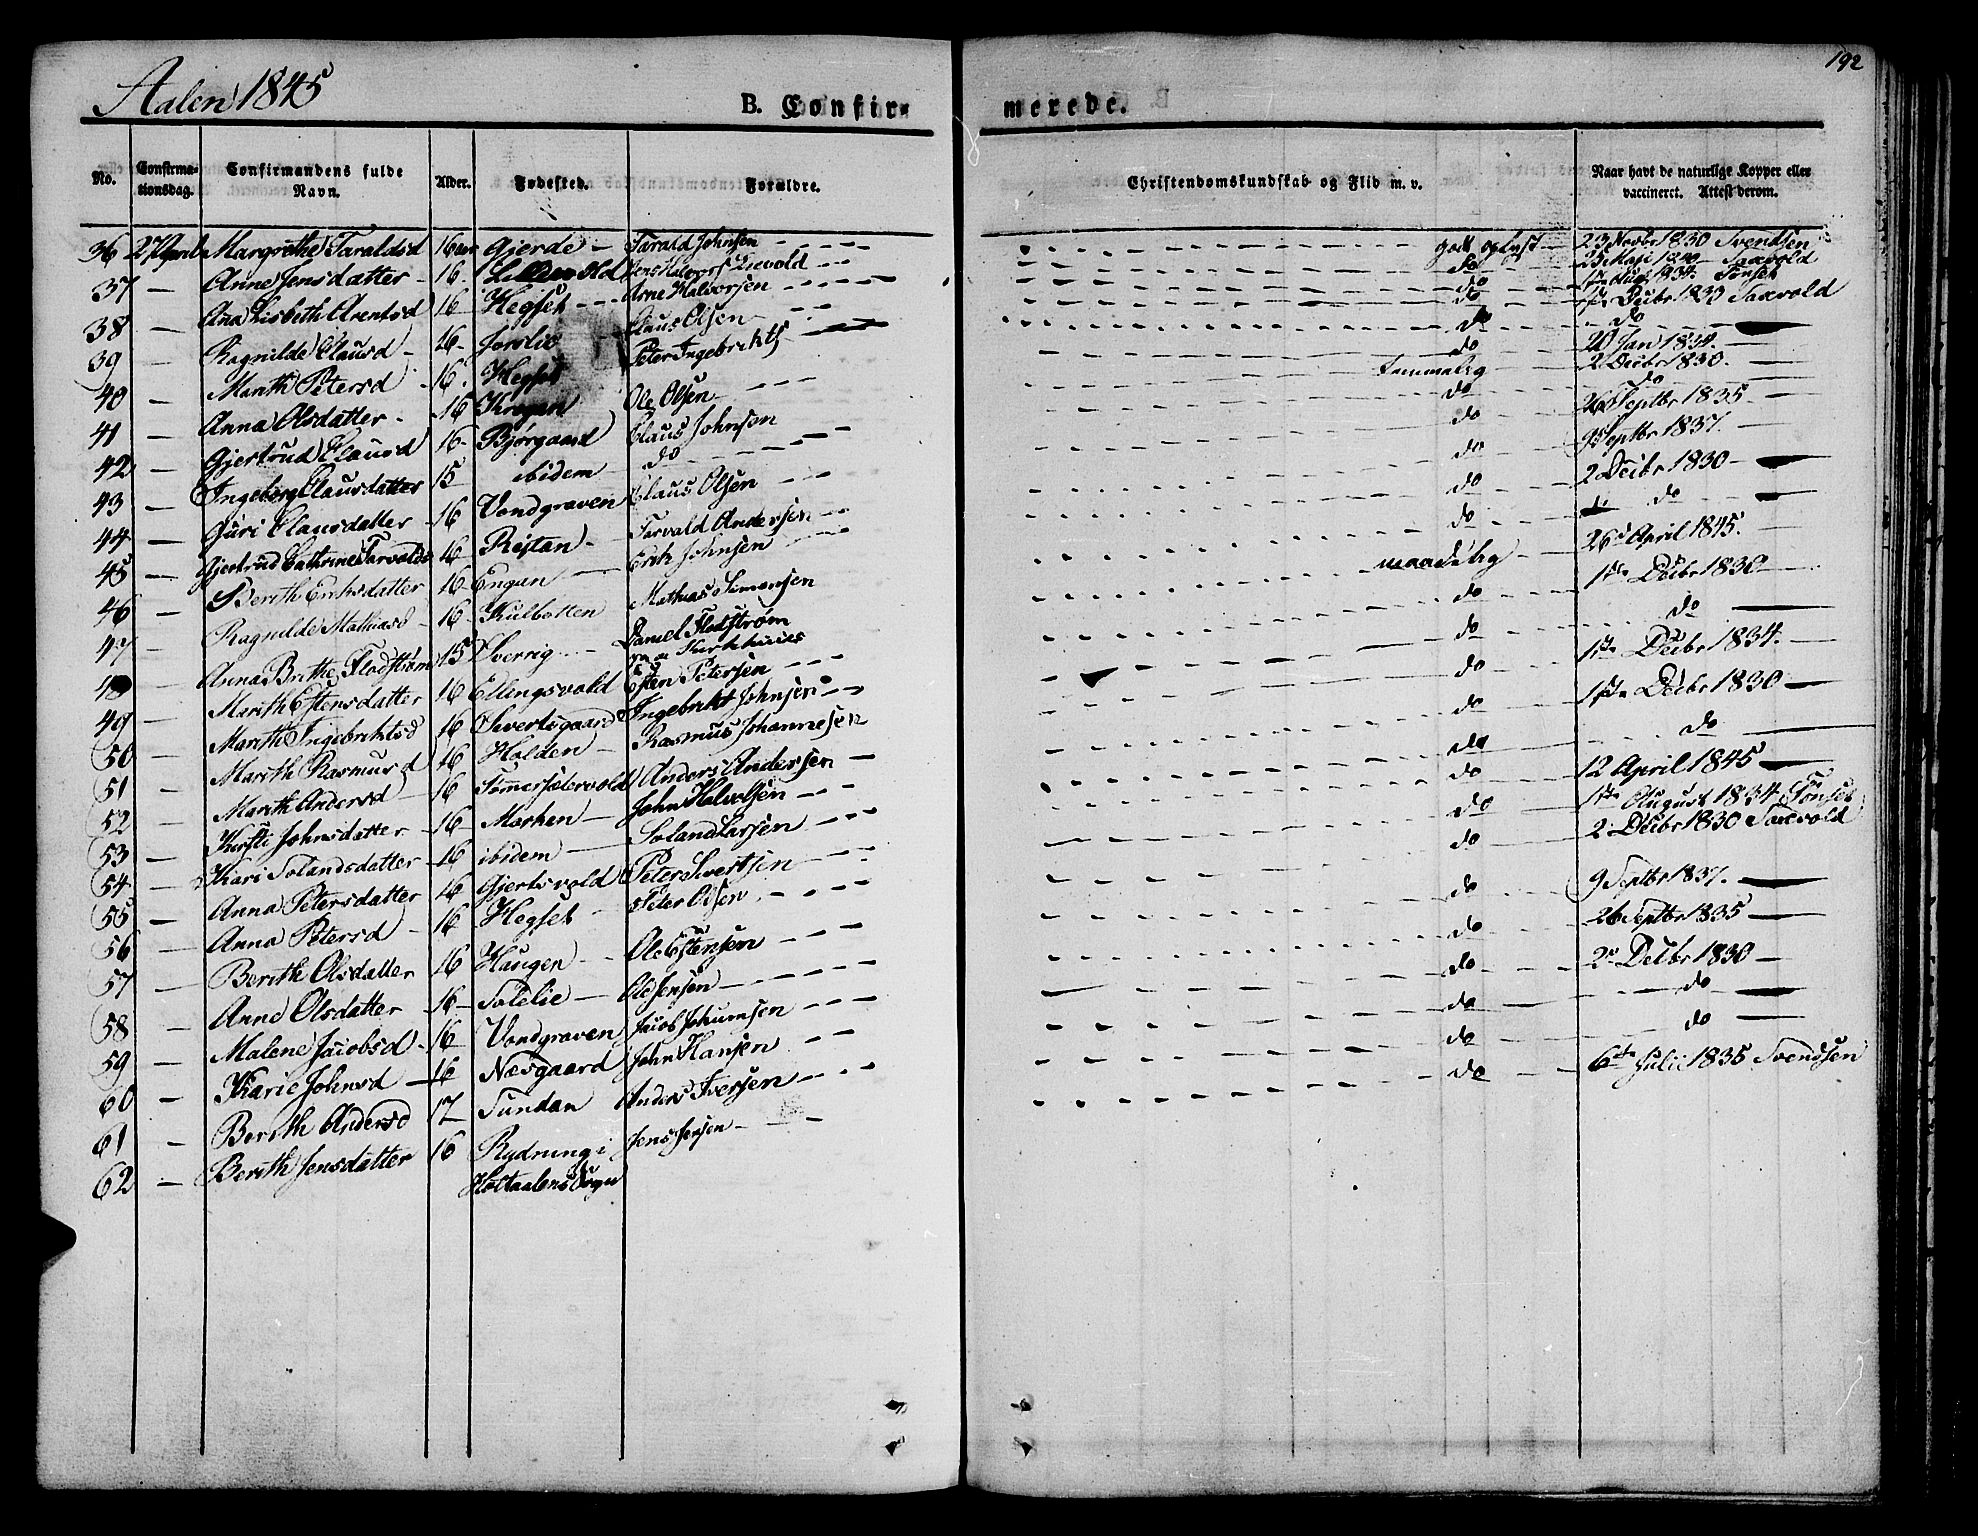 Aalen 1845
192
B. Confirmerede.
No. | Confirmationsdag. | Confirmandens fulde Navn. | Alder. | Fødested. | Forældre. | Christendomskundskab og Flid m. v. | Naar havt de naturlige Kopper eller vaccineret. Attest derom.
36 27 April Margrethe Taraldsd 16 Gjerde Tarald Johnsen godt oplyst 23 Novbr 1830 Svendsen
37 Anne Jensdatter 16 Jens Halvors Lievold do Saxvold
38 Ana Lisbeth Arentsd 16 Hegset Arne Halvorsen do Aug 1834 Tønset
39 Ragnilde Clausd 16 Claus Olsen do Decbr 1830 Saxvold
40 Marith Petersd 16 Hegset Peter Ingebrikts do do
41 Anna Olsdatter 16 Krogan Ole Olsen Jan 1834
42 Gjertrud Clausd 16 Bjørgaard Claus Johnson do 2 Decbr 1830
43 Ingeborg Clausdatter 15 ibidem do do do
44 Guri Clausdatter 16 Vondgraven Claus Olsen do 26 Septbr 1835
45 Gjertrud Cathrine Torvalds 16 Rejtan Torvald Andersen do 9 Septbr 1837
46 Berith Eriksdatter 16 Engan Erik Johnsen do 2 Decbr 1830
47 Ragnilde Mathiasd 16 Kulbotten Mathias Simensen maadelig do
48 Anna Brithe Flodstrøm 15 Sverrig Daniel Flodstrøm do 26 April 1845
49 Marith Estensdatter 16 Ellingsvold Esten Petersen do 1ste Decbr 1830
50 Marith Ingebriktsd 16 Sivertsgaard Ingebrikt Johnsen do do
51 Marith Rasmusd 16 Holden Rasmus Johannesen do 1ste Decbr 1834
52 Marith Andersd 16 Anders Andersen do 1ste Decbr 1830
53 Kirsti Johnsdatter 16 Morken John Halvorsen do do
54 Kari Tolandsdatter 16 ibidem Toland Larsen do 12 April 1845
55 Anna Petersdatter 16 Gjertsvold Peter Sivertsen do 1ste August 1834 Tønset
56 Anna Petersd 16 Hegset Peter Olsen do 2 Decbr 1830 Saxvold
57 Berith Olsdatter 16 Haugen Ole Estensen do 9 Septbr 1837
58 Anne Olsdatter 16 Solelie Ole Jensen do 26 Septbr 1835
59 Malene Jacobsd 16 Vondgraven Jacob Johnsen do 2 Decbr 1830
60 Karie Johnsd 16 Næsgaard John Hansen do do
61 Berith Andersd 17 Sundan Anders Iversen do do
62 Berith Jensdatter 16 Rydrung i Jens Jensen do 6te Julii 1835 Svendsen
Holtaalens Sogn